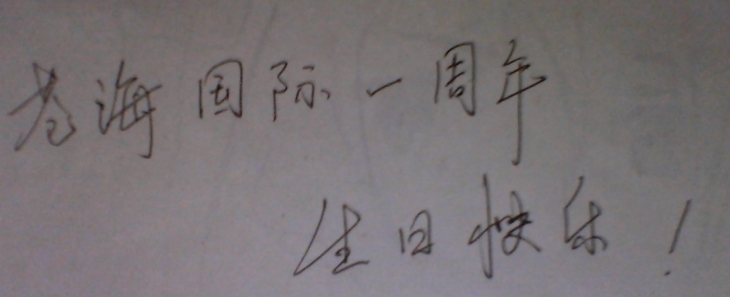 苍海国际一周年
生日快乐！